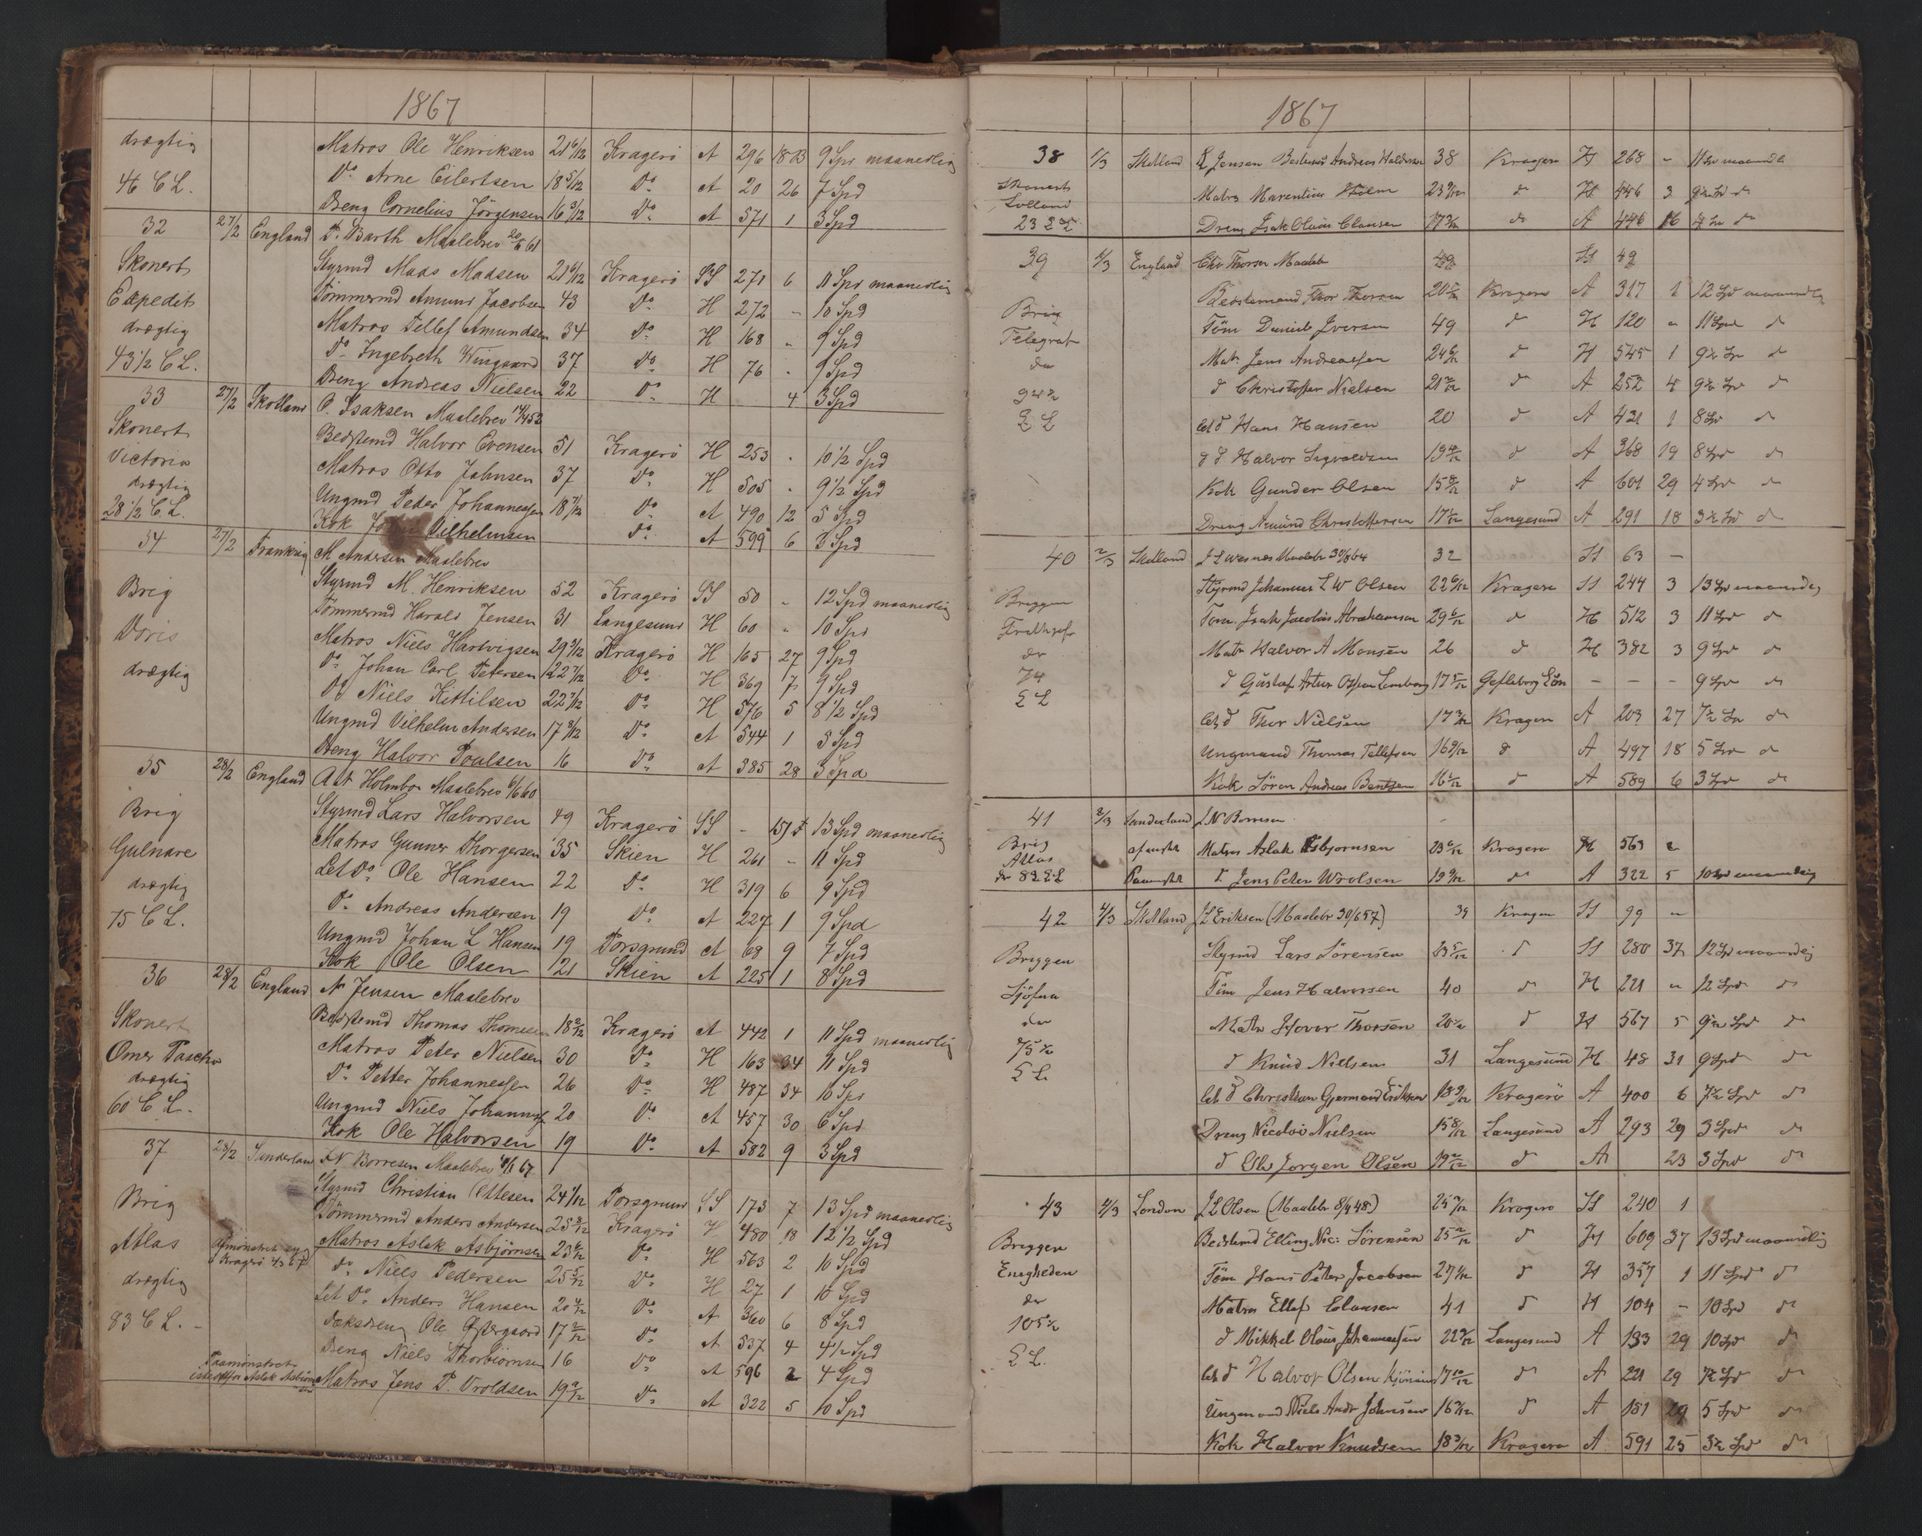 1867
drægtig Matros Ole Henriksen 21 6/12 Kragerö A 296 18 B 9 Spd maanedlig
46 C L. Do Arne Eilertsen 18 5/12 Do A 20 26 7 Spd
Dreng Cornelius Jörgensen 16 3/12 Do A 571 1 3 Spd
32 27/2 England P. Barth Maalebrev 20/6 61
Skonert Styrmd Mads Madsen 21 6/12 Kragerö SS 271 6 11 Spd maanedlig
Expedit Tömmermd Amund Jacobsen 43 Do H 272 - 10 Spd
drægtig Matros Tellef Amundsen 34 Do H 168 - 9 Spd
43 1/2 C L. Do Ingebreth Wingaard 37 Do H 76 - 9 Spd
Dreng Andreas Nielsen 22 Do H 4 3 Spd
33 27/2 Skotland O. Isaksen Maalebrev
Skonert Bedstemd Halvor Evensen 51 Kragerö H 253 - 10 1/2 Spd
Victoria Matros Otto Johnsen 37 Do H 505 - 9 1/2 Spd
drægtig Ungmd Peder Johannessen 18 7/12 Do A 490 12 5 Spd
28 1/2 C L. Kok Vilhelmsen Do A 599 6 3 Spd
34 27/2 Frankrig M Andersen Maalebrev
Brig Styrmd M. Henriksen 52 Kragerö SS 50 - 12 Spd maanedlig
Doris Tömmermd Harald Jensen 31 Langesund H 60 - 10 Spd
drægtig Matros Niels Hartvigsen 29 3/12 Kragerö H 165 27 9 Spd
Do Johan Carl Petersen 22 7/12 Do H 369 7 9 Spd
Do Niels Kittilsen 22 7/12 Do H 576 5 8 1/2 Spd
Ungmd Vilhelm Andersen 17 9/12 Do A 544 1 5 Spd
Dreng Halvor Poulsen 16 Do A 385 28 3 Spd
35 28/2 England Ast Holmboe Maalebrev 6/6 60
Brig Styrmd Lars Halvorsen 49 Kragerö SS - 13 Spd maanedlig
Gulnare Matros Gunner Thorgersen 35 Skien H 261 - 11 Spd
drægtig Let Do Ole Hansen 22 Do H 319 6 9 Spd
75 C L. Do Andreas Andersen 19 Do A 227 1 9 Spd
Ungmd Johan L Hansen 19 Porsgrund A 68 9 7 Spd
Kok Ole Olsen 21 Skien A 225 1 8 Spd
36 28/2 England N Jensen Maalebrev
Skonert Bedstemd Thomas Thomsen 18 2/12 Kragerö A 442 1 11 Spd maanedlig
Omer Pascha Matros Peter Nielsen 30 Do H 163 34 11 Spd
drægtig Do Petter Johannessen 26 Do H 487 34 10 Spd
60 C L. Ungmd Niels Johannes 20 Do A 457 30 6 Spd
Kok Ole Halvorsen 19 Do A 582 9 3 Spd
37 28/2 Sunderland J N Borresen Maalebrev 67
Brig Styrmd Christian Ottesen 24 1/12 Porsgrund SS 173 7 13 Spd maanedlig
Tömmermd Anders Andersen 25 8/12 Kragerö H 480 18 12 1/2 Spd
Atlas Afmönstret Kragerö 4/3 67 Matros Aslak Asbjörnsen 23 6/12 Do H 563 2 10 Spd
Do Niels Pedersen 25 5/12 Do H 27 1 10 Spd
drægtig Let Do Anders Hansen 20 4/12 Do A 360 6 8 Spd
83 C L. - Dæksdreng Ole Östergaard 17 2/12 Do A 537 4 4 1/2 Spd
Dreng Niels Thorbiörnsen 16 Do A 596 2 4 Spd
Paamönstret istedetfor Aslak Asbjörnsen Matros Jens P. Vroldsen 19 9/12 Do A 322 5 10 Spd
1867
38 1/3 Skotland K Jensen Bestemd Andreas Halvorsen 38 Kragerö H 268 - 11 Spd maanedl
Skonert Lolland Matros Marentius Holm 23 9/12 d H 446 3 9 1/2 Spd d
23 C L Dreng Isak Olaus Clausen 17 3/12 d A 446 16 4 Spd d
39 1/3 England Chr Thorsen Maalebr 49 SS 49
Bedstemand Thor Thorsen 20 Kragerö A 317 1 12 Spd maanedlig
Brig Töm Daniel Iversen 49 d H 120 - 11 Spd d
Telegraf Mat. Jens Andreassen 24 6/12 d H 545 1 9 1/2 Spd d
dr d Christofer Nielsen 21 2/12 d A 252 4 9 1/2 Spd d
94 1/2 let d Hans Hansen 20 d A 421 1 8 Spd d
C L d d Halvor Sigvaldsen 19 d A 368 19 8 Spd d
Kok Gunder Olsen 15 8/12 d A 601 29 4 Spd d
Dreng Amund Christoffersen 17 Langesund A 291 18 3 1/2 Spd d
40 2/3 Skotland J L Wesnes Maalebr 30/8 64 32 SS 63 -
Styrmd Johannes L W Olsen 22 6/12 Kragerö SS 244 3 13 Spd maanedlig
Briggen Töm. Isak Jacobus Abrahamsen 29 6/12 d H 512 3 11 Spd d
Matr Halvor A Monsen 26 d H 382 3 9 Spd d
dr 74 d Gustaf Artur 17 5/12 Gefleborg - - - 9 Spd d
C L let d Thor Nielsen 17 Kragerö A 203 27 7 1/2 Spd d
Ungmand Thomas Tellefsen 16 9/12 d A 497 18 5 Spd d
Kok Sören Andreas Bentsen 16 d A 589 6 3 Spd d
41 2/3 Sunderland J N Borresen
Brig Atlas afmønstr Matros Aslak Asbjornsen 23 6/12 Kragerö H 563 2
dr 83 C L Paamönstr d Jens Peter Wrolsen 19 9/12 d A 322 5 10 Spd maanedlig
42 4/3 Skotland J Eriksen (Maalebr 30/6 57) 39 Kragerö SS 99 -
Briggen Styrmd Lars Sörensen 23 5/12 d SS 280 37 12 Spd maanedlig
Sjöfna Töm Jens Halvorsen 40 d H 221 - 12 Spd d
dr Matr Hover Thorsen 20 d H 567 5 9 1/2 Spd d
75 1/2 d Knud Nielsen 31 Langesund H 48 31 9 Spd d
C L. let d Christian Gjermund Eriksen 18 9/12 Kragerö A 400 6 7 1/2 Spd d
Dreng Nicolai Nielsen 15 8/12 Langesund A 293 29 3 Spd d
d Ole Jorgen Olsen 19 d A 23 3 Spd d
43 4/3 London J L Olsen (Maalebr 8/4 48) 25 Kragerö SS 240 1
Briggen Bedstemd Elling Nic: Sörensen 25 d H 609 37 13 Spd maanedlig
Enigheden Töm Hans Peter Jacobsen 27 d H 357 1 11 Spd d
dr Matros Ellef Clausen 41 d H 104 - 10 Spd d
105 1/2 d Mikkel Olaus Johannessen 22 Langesund A 133 29 10 Spd d
C L. let d Halvor Olsen 17 10/12 d A 221 29 7 1/2 Spd d
Ungmand Niels Andr Johnsen 16 d A 181 29 5 Spd d
Kok Halvor Knudsen 18 3/12 Kragerö A 591 25 3 1/2 Spd d